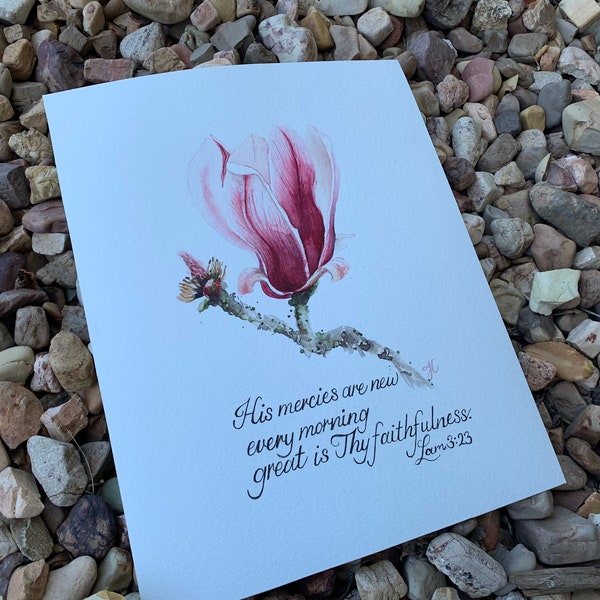 His mercies are new
every morning
great is Thy faithfulness.
Lam 3:23